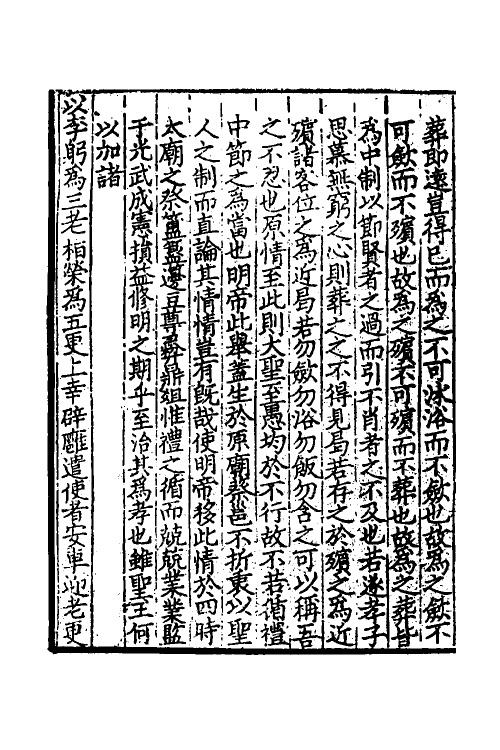 葬即遠豈得已而為之不可沐浴而不斂也故為之斂不
可斂而不殯也故為之殯不可殯而不葬也故為之葬皆
為中制以節賢者之過而引不肖者之不及也若遂孝子
思慕無窮之心則葬之之不得見曷若存之於殯之為近
殯諸客位之為近曷若勿斂勿浴勿飯勿含之可以稱吾
之不忍也原情至此則大聖至愚均於不行故不若循禮
中節之為當也明帝此舉蓋生於原廟蔡邕不折衷以聖
人之制而直論其情情豈有旣哉使明帝移此情於四時
太廟之祭簠簋籩豆尊彛鼎俎惟禮之循而兢兢業業監
于光武成憲損益修明之期乎至治其為孝也雖聖王何
以加諸
以李躬為三老桓榮為五更上幸辟雍遣使者安車迎老更